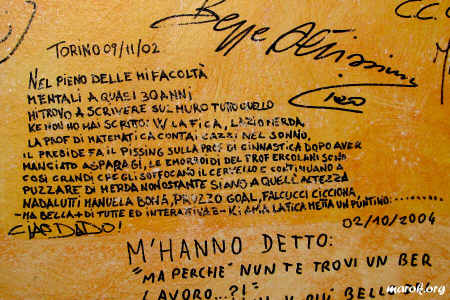 C.C.
Beppe Altissimi
TORINO 09/11/02
Ciao
NEL PIENO DELLE MI FACOLTÀ
MENTALI A QUASI 30 ANNI
MI TROVO A SCRIVERE SUL MURO TUTTO QUELLO
KE NON HO MAI SCRITTO: W LA FICA, LAZIO MERDA,
LA PROF DI MATEMATICA CONTA I CAZZI NEL SONNO,
IL PRESIDE FA IL PISSING SULLA PROF DI GINNASTICA DOPO AVER
MANGIATO ASPARAGI, LE EMORROIDI DEL PROF ERCOLANI SONO
COSÌ GRANDI CHE GLI SOFFOCANO IL CERVELLO E CONTINUANO A
PUZZARE DI MERDA NONOSTANTE SIANO A QUELL'ALTEZZA
NADALUTTI MANUELA BONA, PRUZZO GOAL, FALCUCCI CICCIONA,
MA BELLA + DI TUTTE ED INTERATTIVA - KI AMA LA FICA METTA UN PUNTINO:..........
CIAO DADO!
02/10/2004
M'HANNO DETTO:
"MA PERCHÈ NUN TE TROVI UN BER
LAVORO...?!"
PIÙ BELL
marok.org